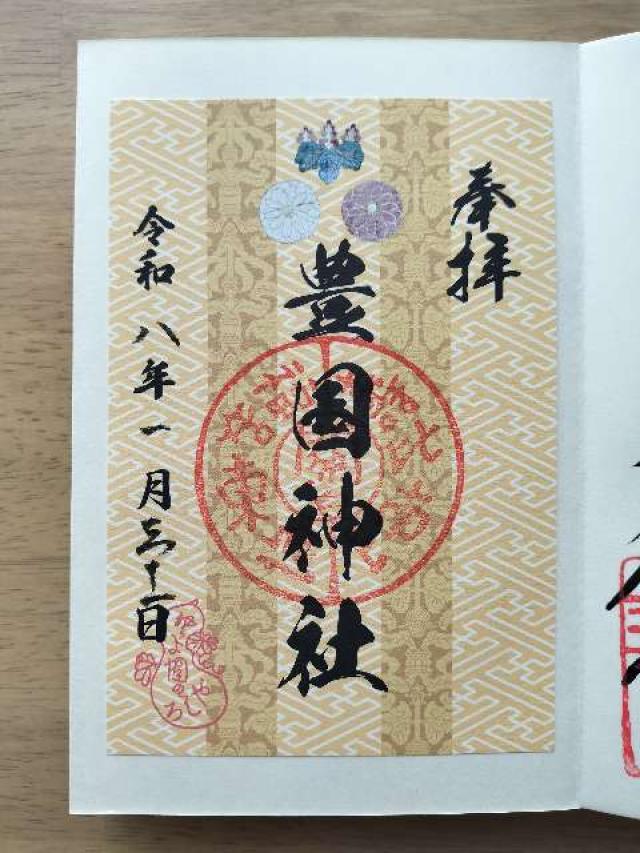 奉拝
豊国神社
令和八年一月三十一日